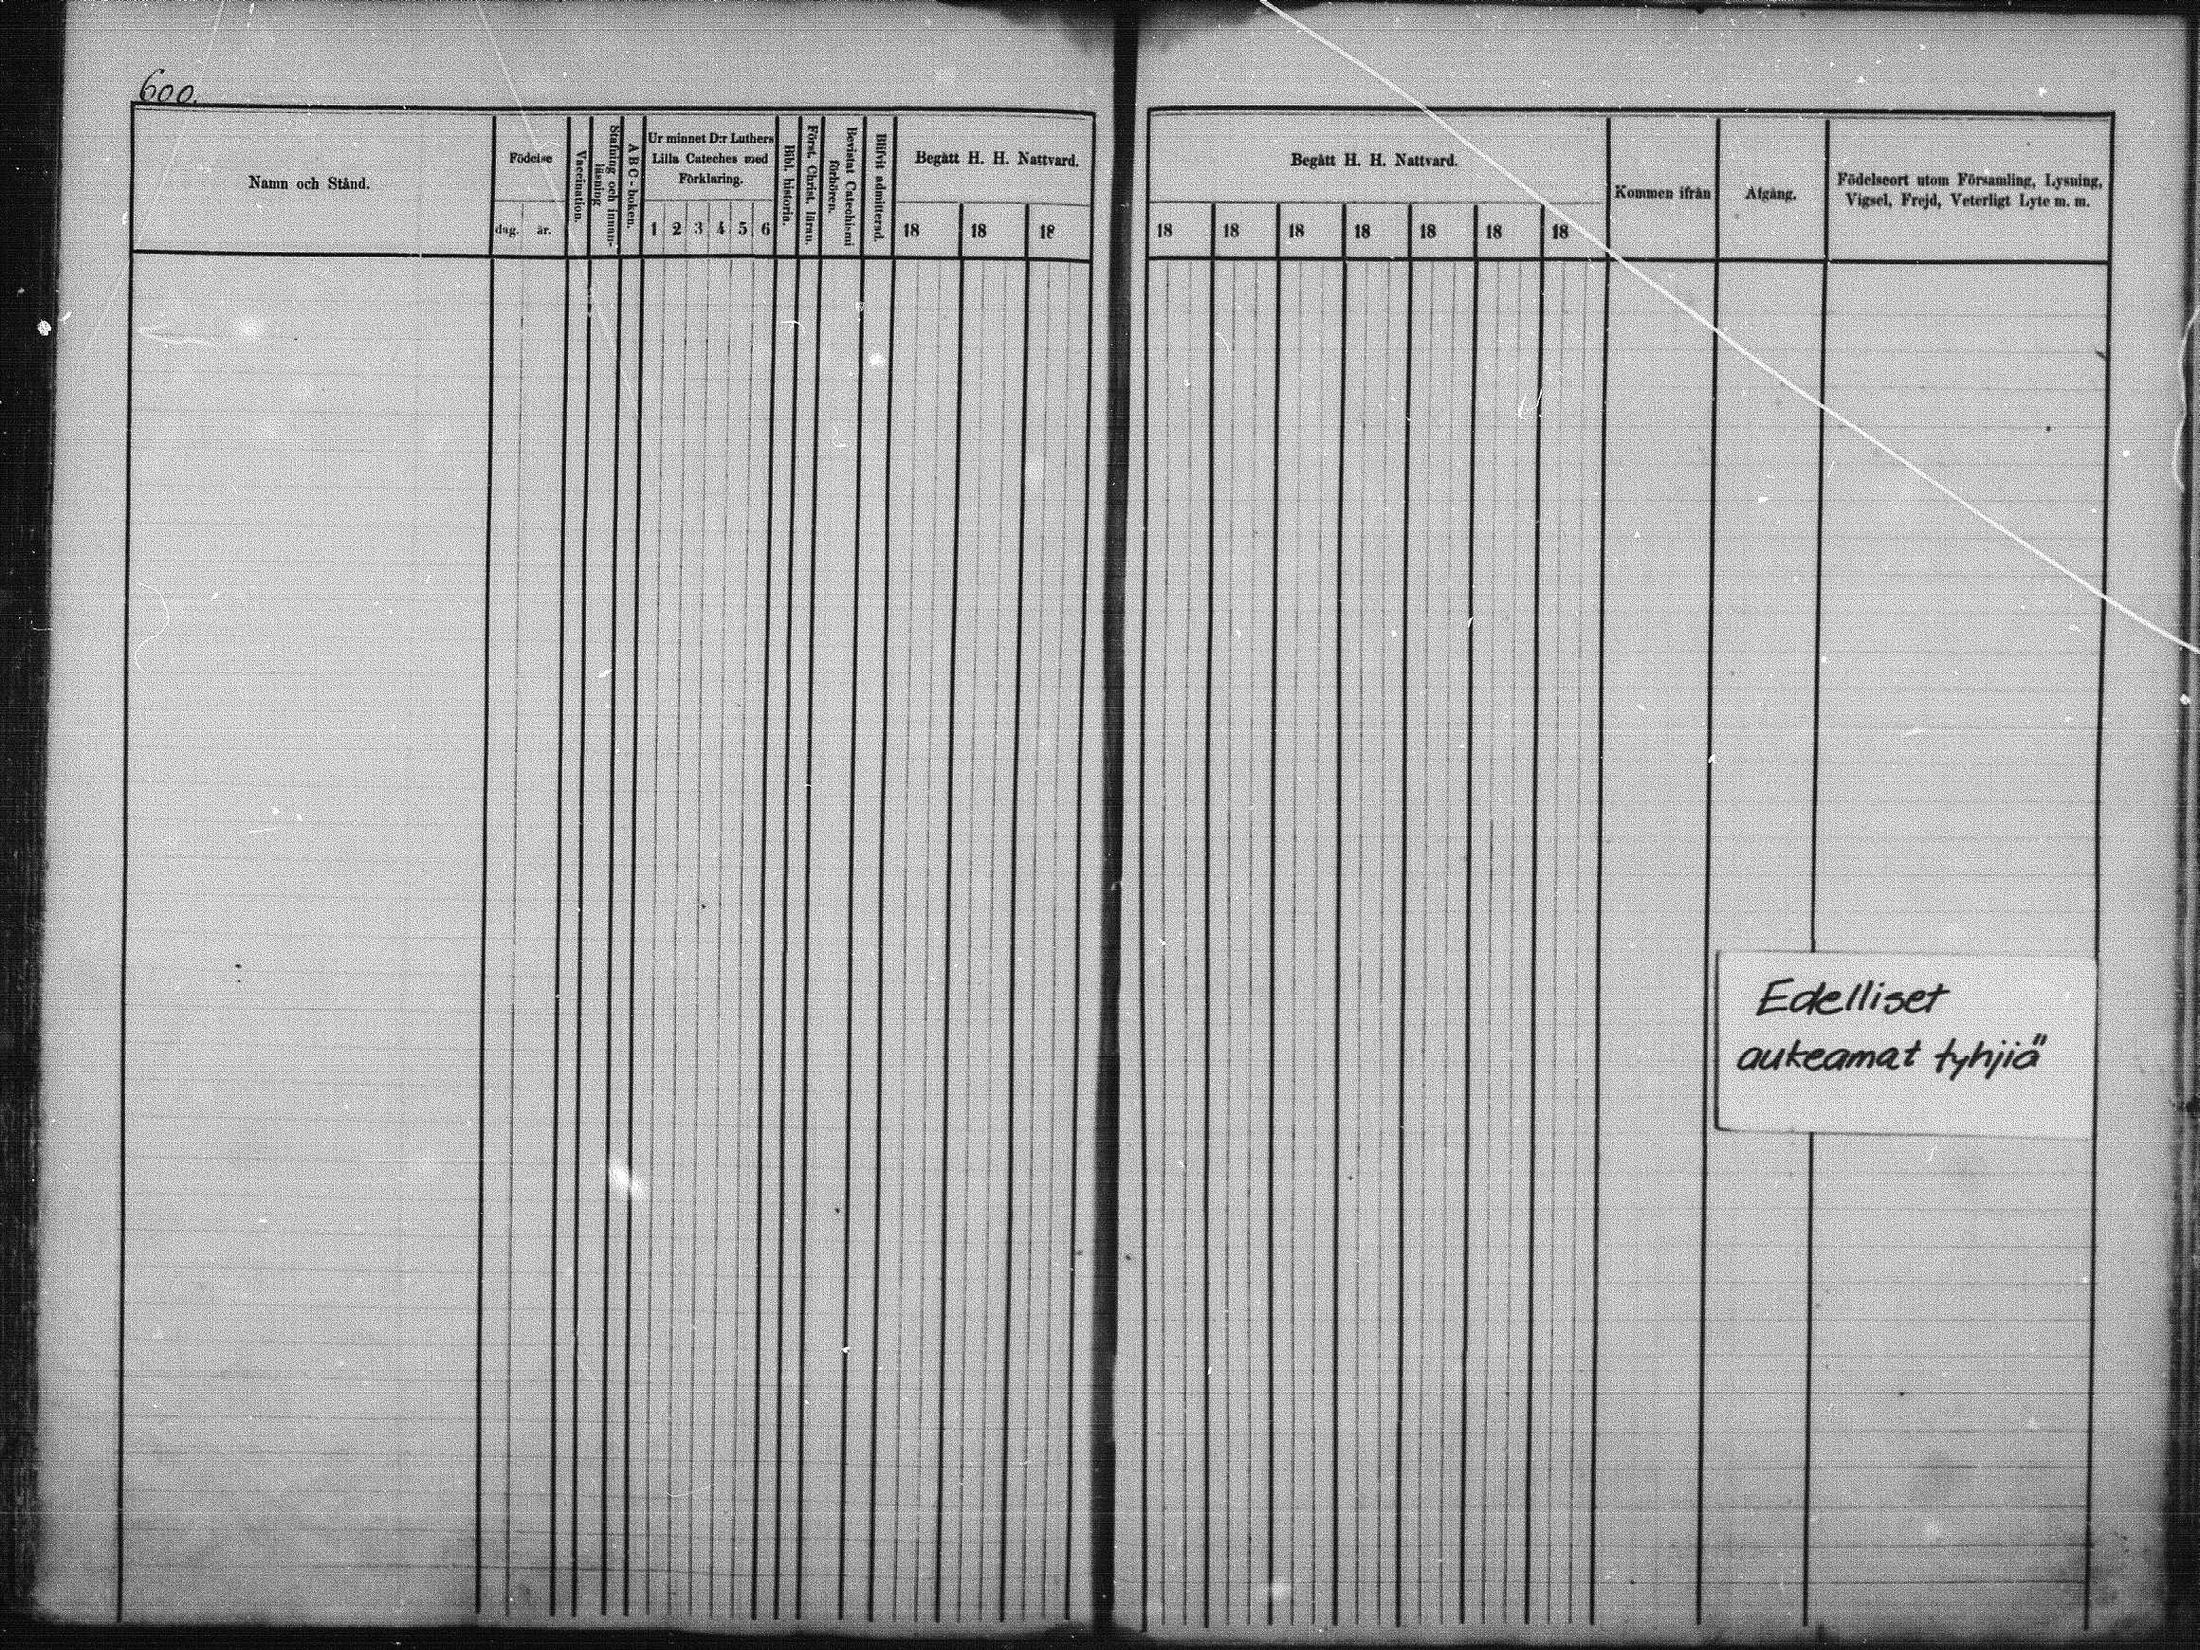 600.
Namn och Stånd.
Födelse
dag. år.
Vaccination.
Stafning och innan-
läsning
A B C - boken.
Ur minnet D:r Luthers
Lilla Cateches med
Förklaring.
1 2 3 4 5 6
Bibl. historia.
Först. Christ. lärau.
Bevistat Catechismi
förhören.
Blifvit admitterad.
Begått H. H. Nattvard.
18 18 18
Begått H. H. Nattvard.
18 18 18 18 18 18 18
Kommen ifrån
Afgång.
Födelseort utom Församling, Lysning,
Vigsel, Frejd, Veterligt Lyte m. m.
Edelliset
aukeamat tyhjiä